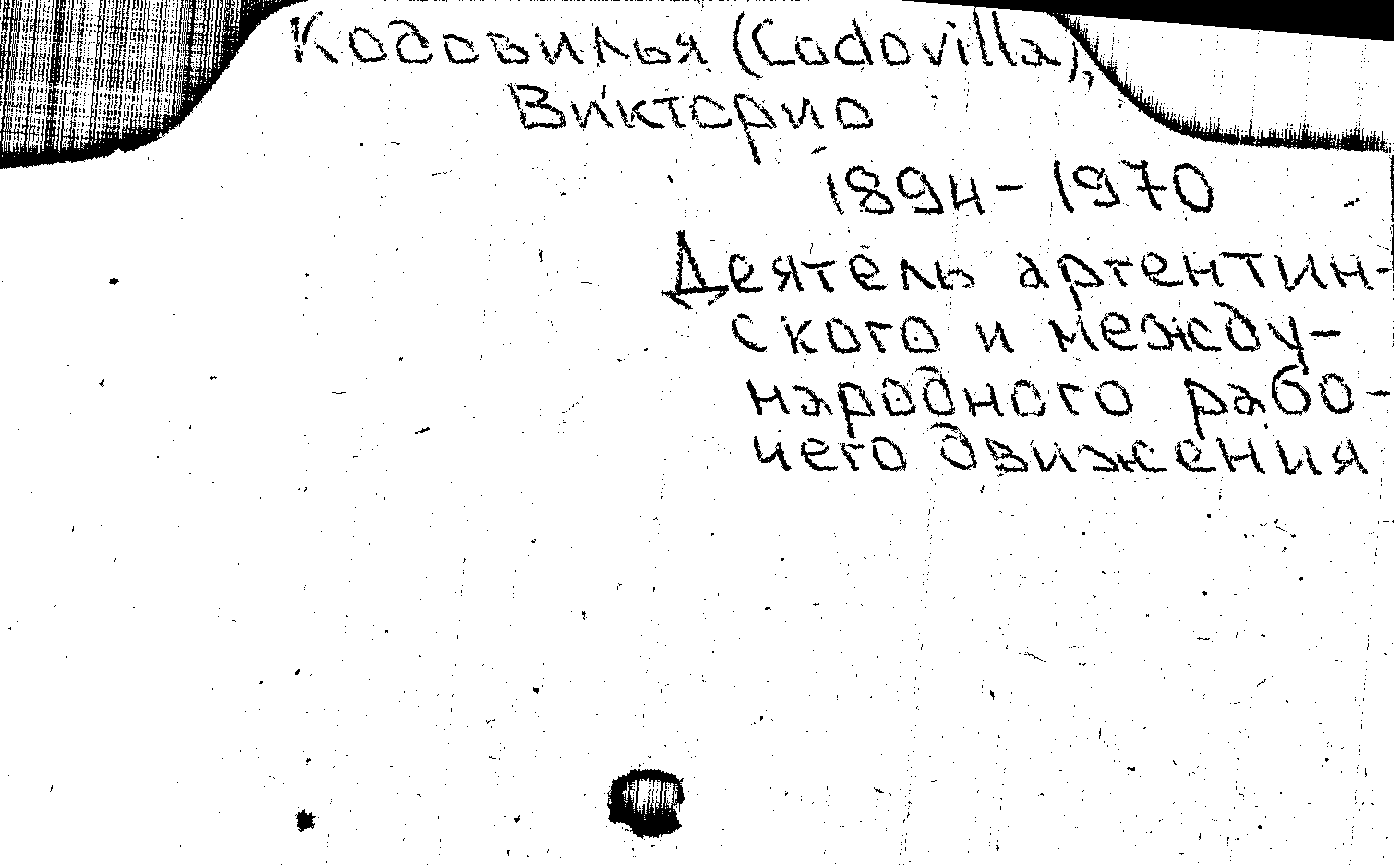 Кодовилья (Codovilla),
Викторио
1894-1970
Деятель аргентин-
ского и между-
народного рабо-
чего движения